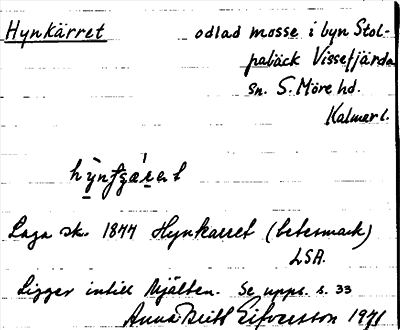 Hynkärret odlad mosse i byn Stol-
pabäck Vissefjärda
sn. S. Möre hd.
Kalmar l.
Laga sk. 1844 Hynkarret (betesmark)
LSA.
Ligger intill Mjälten. Se upps. s. 33
Anna-Britt Eifvorsson 1971